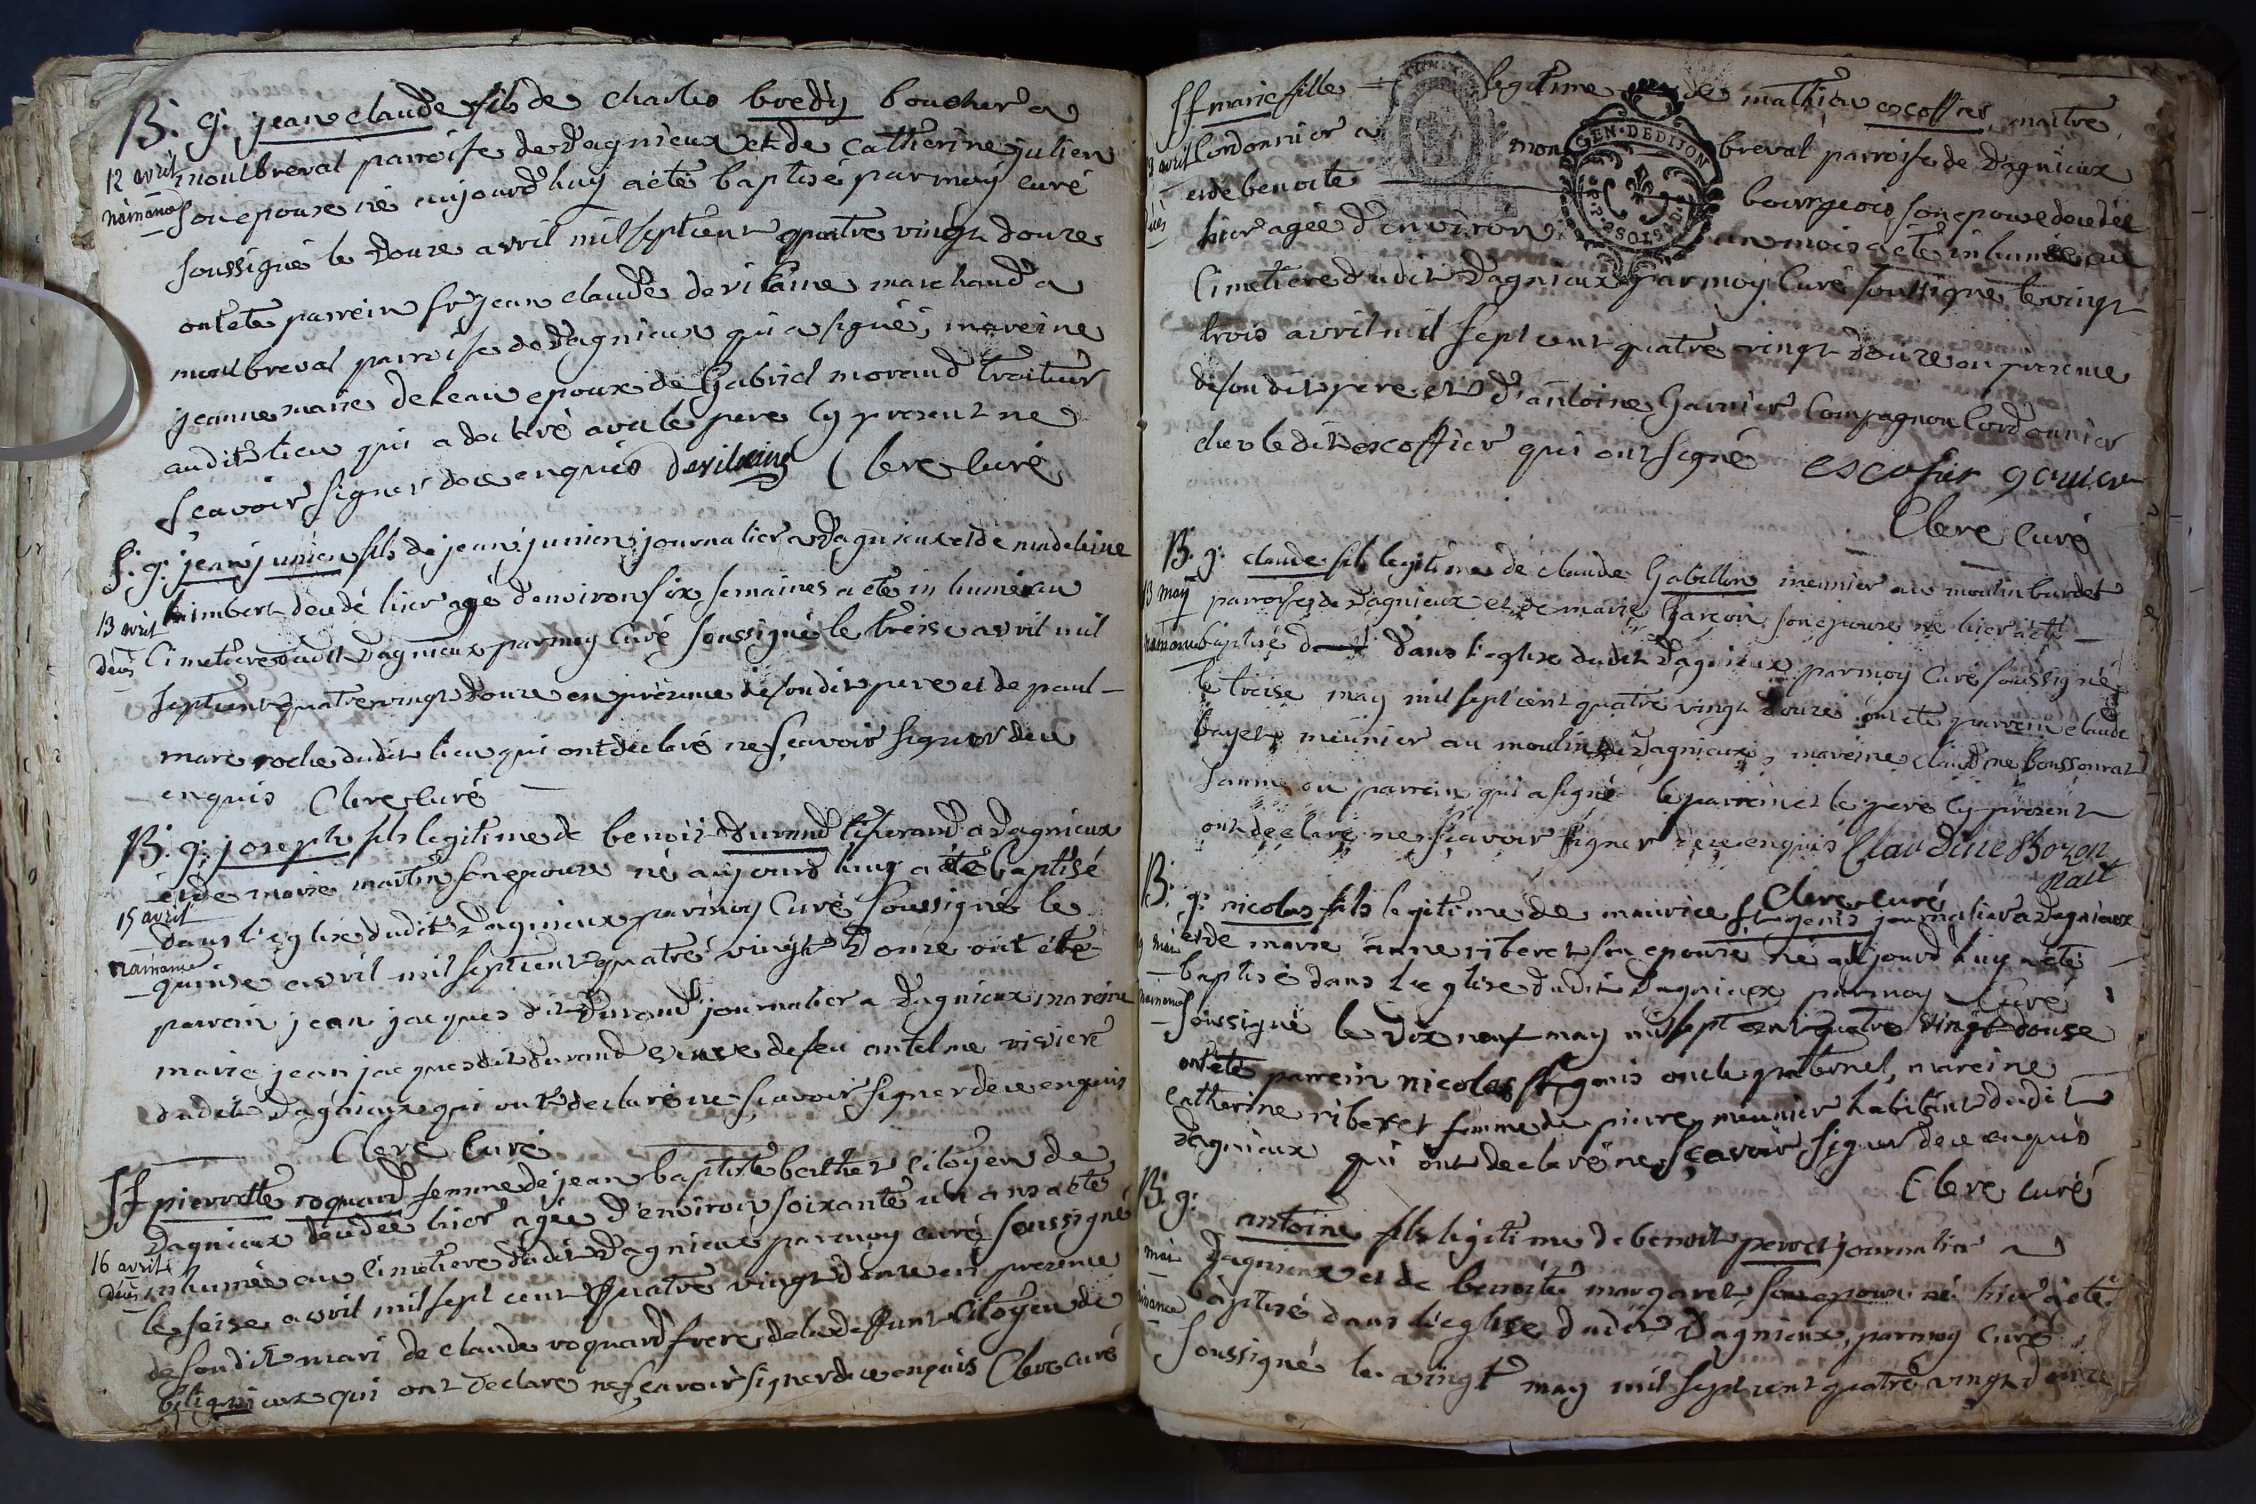 B. g. jean claude fils de charles bredy boucher a
12 avril montbreval parroisse de Dagnieux et de Catherine julien
naissance son epouse né aujourd'huy a eté baptisé par moy curé
soussigné le Douze avril mil sept cent quatre vingt douze
ont eté parrein sr jean claude devilaine marchand a
montbreval parroisse de Dagnieux qui a signé, mareine
jeanne marie deleau epouse de Gabriel morand traiteur
audit lieu qui a declaré avec le pere cy present ne
scavoir signer de ce enquis devilaine Clere curé
f. g. jean junien fils de jean junien journalier a Dagnieux et de madeleine
himbert decedé hier agé d'environ six semaines a eté inhumé au
13 avril
décès Cimetiere dudit Dagnieux par moy Curé soussigné le treise avril mil
sept cent quatre vingt douze en présence de son dit pere et de paul
marc roche dudit lieu qui ont declaré ne scavoir signer de ce
enquis Clere curé
B. g. joseph fils legitime de benoit Durand tisserand a Dagnieux
et de marie martin son epouse né aujourd huy a eté baptisé
15 avril
dans l'eglise dudit Dagnieux par moy Curé soussigné le
naissance
quinse avril mil sept cent quatre vingt Douze ont été
parrein jean jacques dit Durand journalier a Dagnieux mareine
marie jean jacques dit durand veuve de feu antelme riviere
dudit Dagnieux qui ont declaré ne scavoir signer de ce enquis
Clere Curé
ff pierrette roquard femme de jean baptiste berthet Citoyen de
Dagnieux decedée hier agée D'environ soixante un ans a eté
16 avril
décès inhumée au Cimetiere dudit Dagnieux par moy curé soussigné
le seise avril mil sept cent quatre vingt douze en presence
de son dit mari de claude roquard frere de la deffunte Citoyen de
blignieux qui ont declaré ne scavoir signer de ce enquis Clere curé
ff marie fille legitime de mathieu escoffier maitre
23 avril Cordonnier a mont breval parroisse de Dagnieux
décès et de benoite bourgeois son epouse decedée
hier agée D'environ un mois a eté inhumée au
Cimetiere dudit Dagnieux par moy Curé soussigné le vingt
trois avril mil sept cent quatre vingt douze en presence
de son dit pere et d'antoine Garnier Compagnon Cordonnier
chez le dit escoffier qui ont signé escofier garnier
Clere Curé
GEN. DE DIJON
B. g. claude fils legitime de claude Gabillon meunier au moulin burdet
13 may parroisse de Dagnieux et de marie Garçon son epouse né hier a eté
naissance baptisé dans l'eglise dudit Dagnieux par moy Curé soussigné
le treise may mil sept cent quatre vingt douze ont eté parrein claude
bayet meunier au moulin de Dagnieux, mareine claudine boussonrat
femme du parrein qui a signé le parrein et le pere cy present
ont declaré ne scavoir signer de ce enquis Claudine Bozon
nait
Clere curé
B. g. nicolas fils legitime de maurice St genis journalier a Dagnieux
et de marie anne riberet son epouse né aujourd'huy a eté
19 mai baptisé dans l'eglise dudit Dagnieux par moy Curé
naissance soussigné le dix neuf may mil sept cent quatre vingt douse
ont eté parrein nicolas St genis oncle paternel, mareine
Catherine riberet femme de pierre meunier habitant dudit
Dagnieux qui ont declaré ne scavoir signer de ce enquis
Clere curé
B. g. antoine fils legitime de benoit perret journalier a
mai Dagnieux et de benoite margaret son epouse né hier a eté
naissance baptisé dans l'eglise dudit Dagnieux par moy Curé
soussigné le vingt may mil sept cent quatre vingt douze